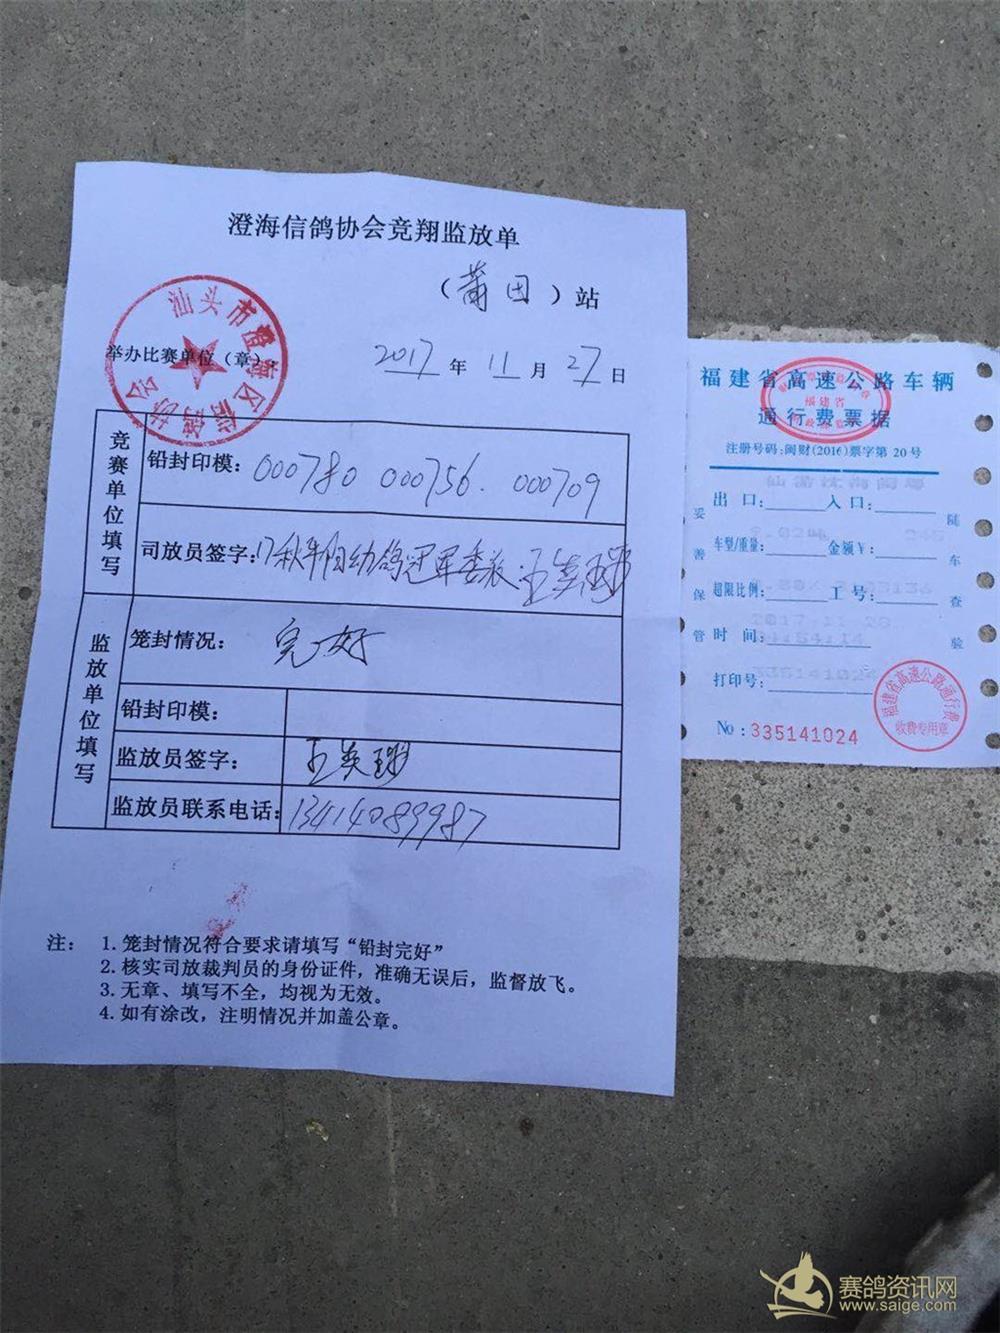 澄海信鸽协会竞翔监放单
（莆田）站
汕头市澄海区信鸽协会
举办比赛单位（章）：
2017年 11 月 27 日
竞赛单位填写
铅封印模：000780 000756. 000709
司放员签字：
监放单位填写
笼封情况：完好
铅封印模：
监放员签字：
监放员联系电话：13414089987
注： 1. 笼封情况符合要求请填写“铅封完好”
2. 核实司放裁判员的身份证件，准确无误后，监督放飞。
3. 无章、填写不全，均视为无效。
4. 如有涂改，注明情况并加盖公章。
福建省高速公路车辆
通行费票据
福建省
注册号码：闽财(2016)票字第 20 号
出 口：
入口：
车型/重量：
金额￥：
超限比例：
工号：
时 间：
2017.11.28
打印号：
335141024
№：335141024
妥善保管
随车查验
福建省高速公路通行费
收费专用章
赛鸽资讯网
www.saige.com